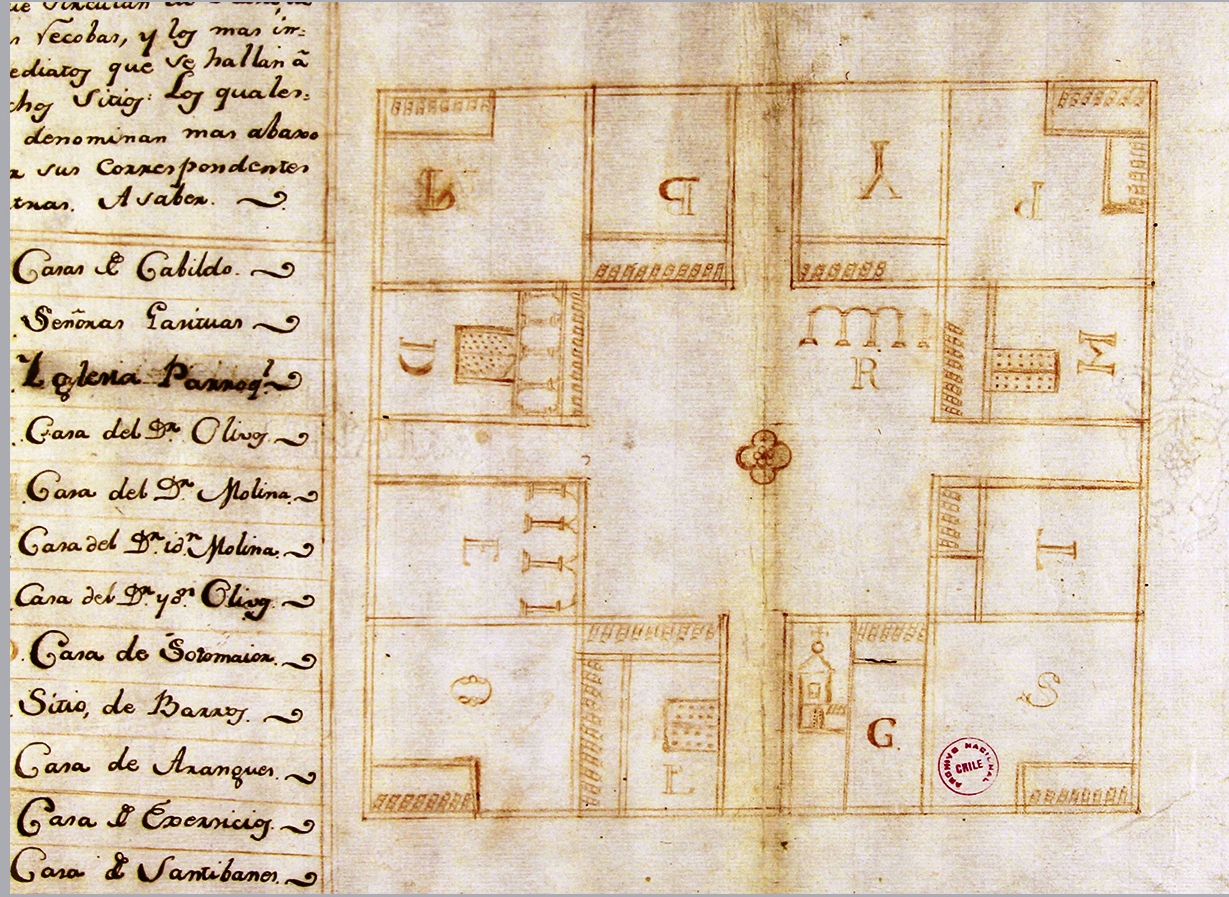 s recobas, y los mas in=
ediatos que se hallan â
chos Sitios: Los quales=
denominan mas abaxo
r sus correspondentes
tras. A saber.
Casas de Cabildo.
Señoras
Yglesia Parroql.
Casa del Dr. Olivos
Casa del Dr. Molina.
Casa del Dr. idn. Molina.
Casa del Dr. Olivos
Casa de Sotomaior.
Sitio, de Barros.
Casa de Arangues.
Casa de Exersicios.
Casa de Santibanes.
P
P
Y
P
D
R
M
E
T
O
L
G.
S
ARCHIVO NACIONAL
CHILE